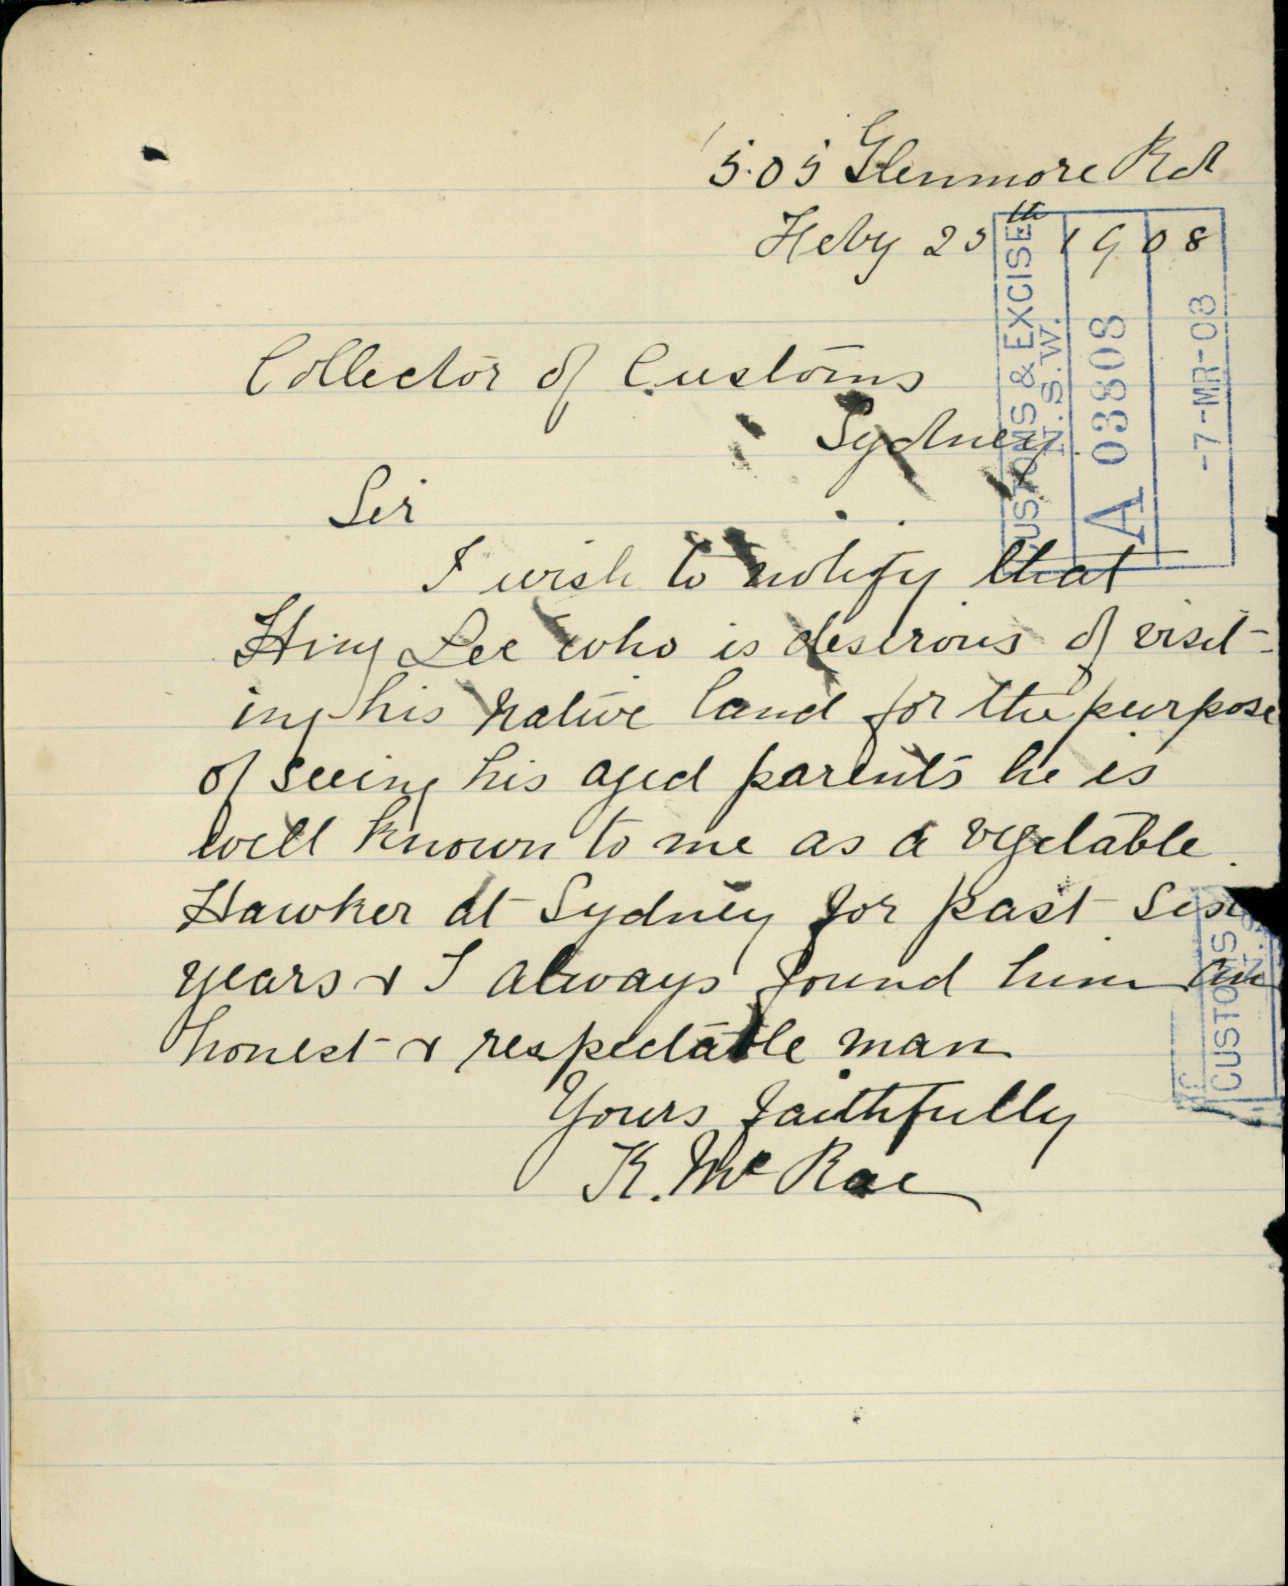 505 Glenmore Rd
Feby 25th 1908
CUSTOMS & EXCISE
N.S.W.
A 03808
-7-MR-08
Collector of Customs
Sydney
Sir
I wish to notify that
Hing Lee who is desirous of visit-
ing his native land for the purpose
of seeing his aged parents he is
well known to me as a vegetable
Hawker at Sydney for past six
years & I always found him an
honest & respectable man
CUSTOMS
Yours faithfully
K. McRae